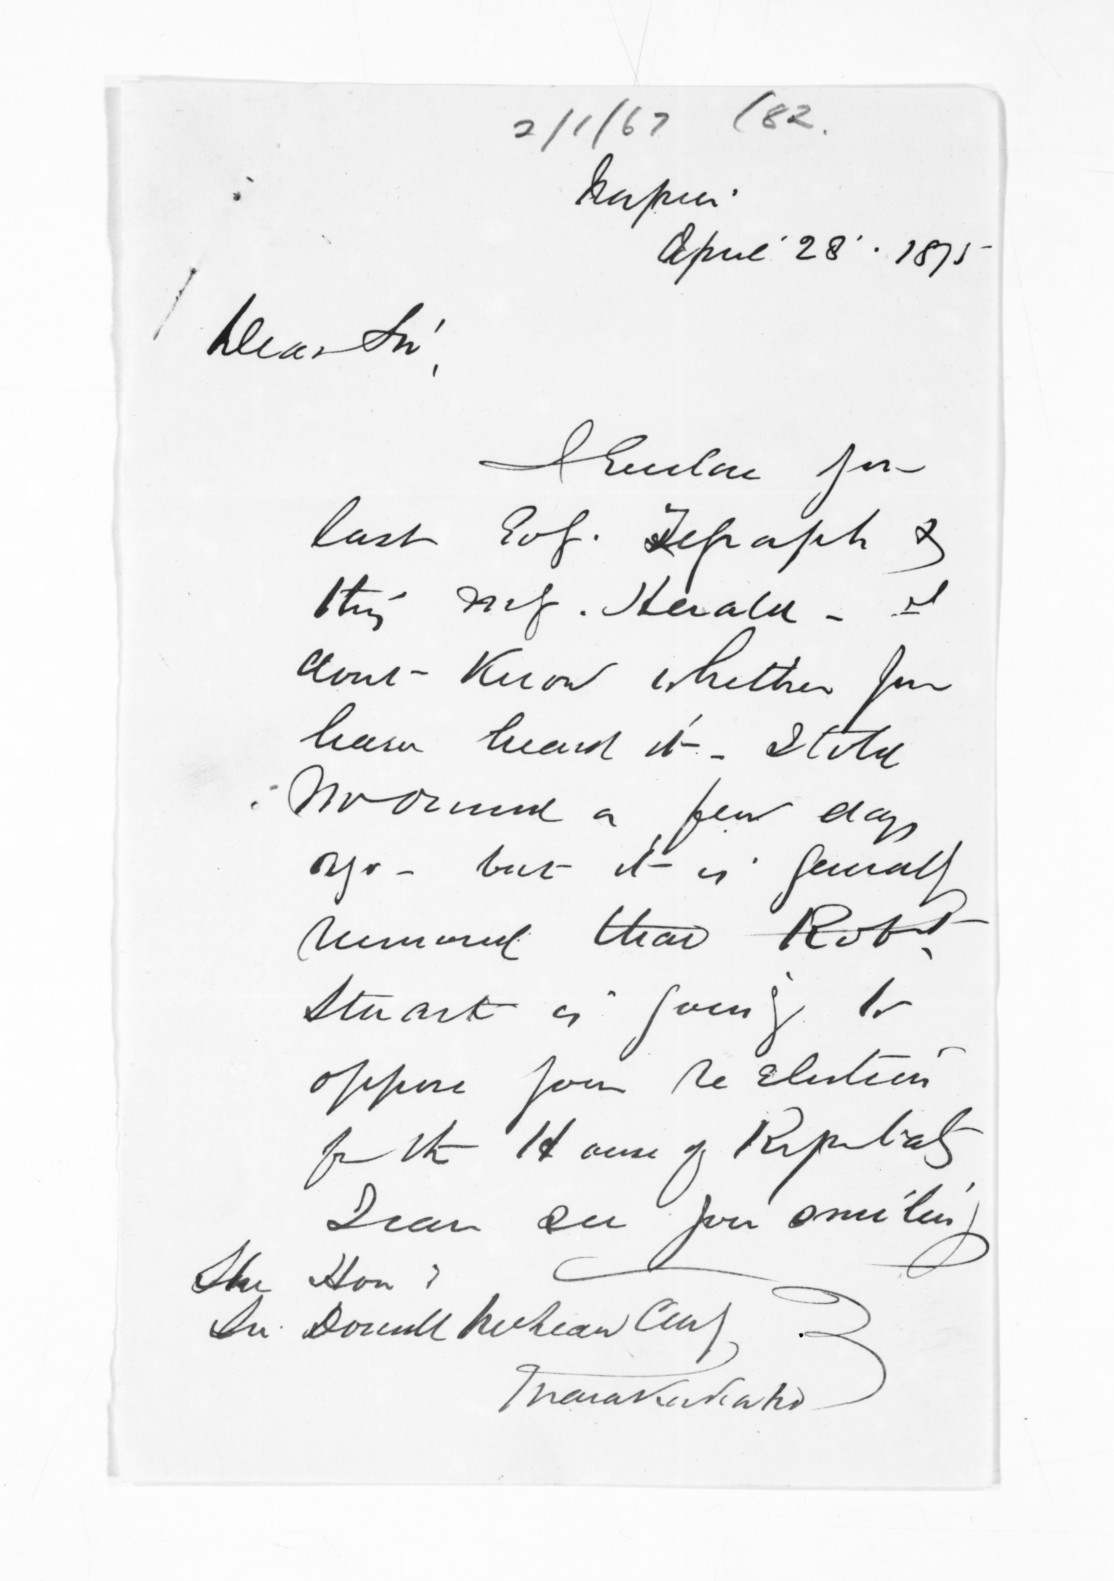 2/1/67 (82.
Napier
April 28. 1875
Dear Sir,
I Enclose you
last Evg. Telegraph &
this mg. Herald - I
dont Know whether you
have heard it - I told
Mr Ormond a few days
ago - but it is generally
rumoured that Robt.
Stuart is going to
oppose your re Election
for the House of
I can see you smiling
The Hon
Sir Donald McLean
Maraekakaho